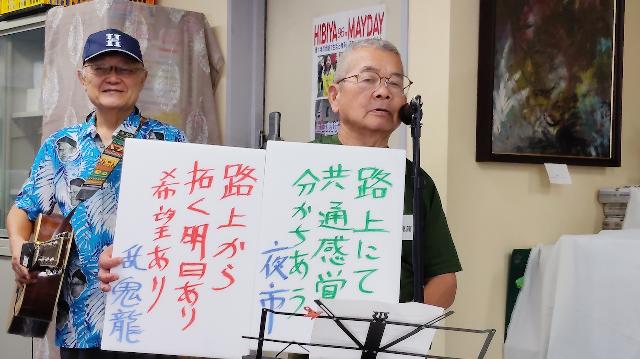 HIBIYA 96th MAYDAY
H
路上にて
共通感覚
分かちあう
夜市
路上から
拓く明日あり
希望あり
乱鬼龍